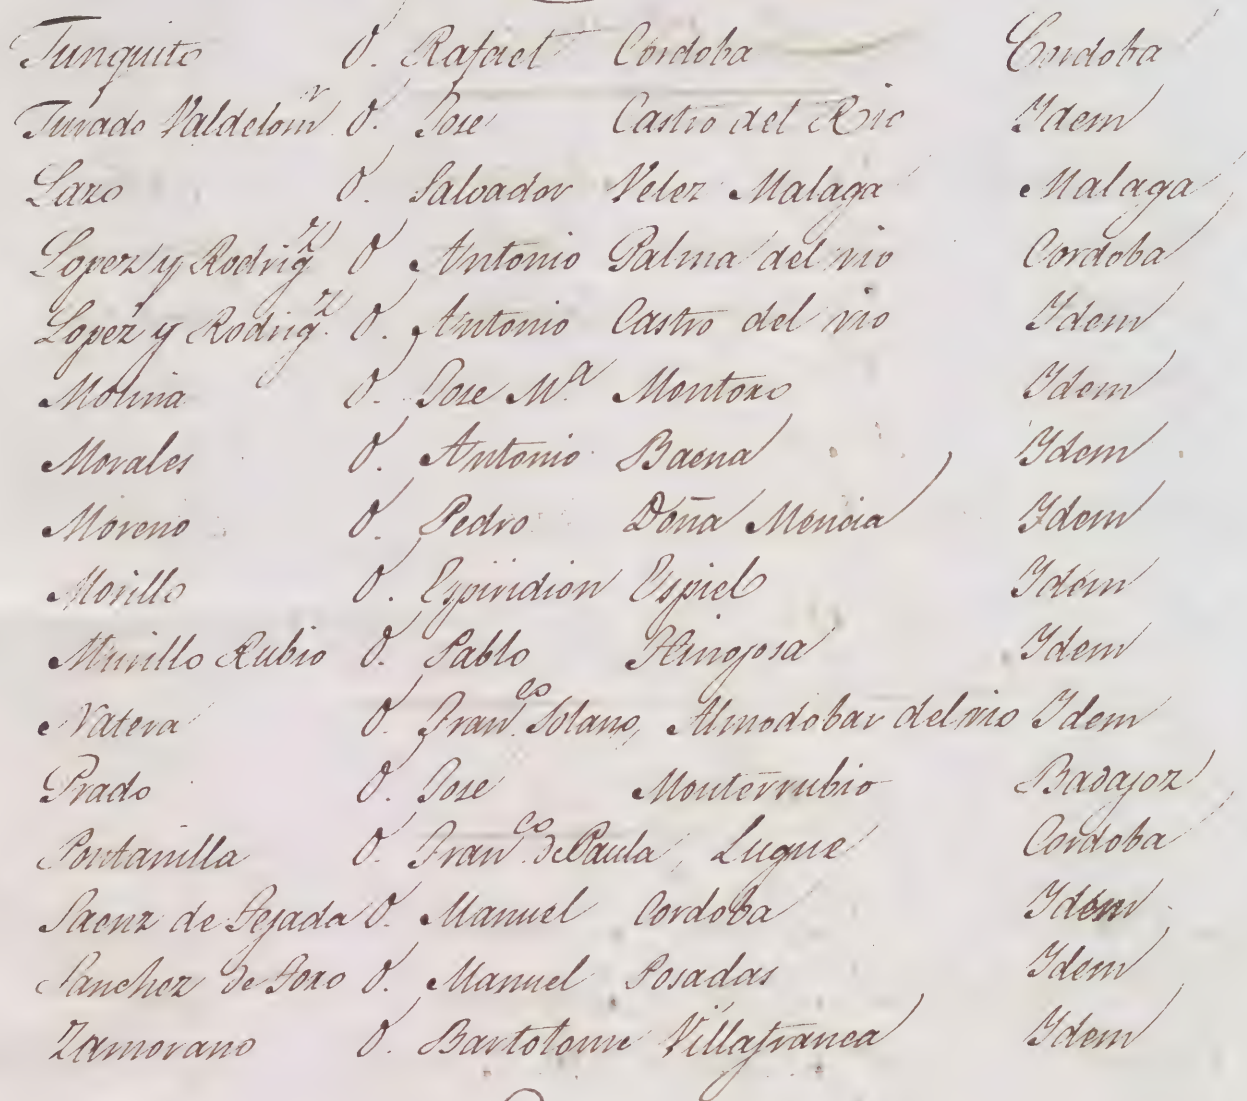 Junquito D. Rafael Cordoba Cordoba
Jurado Valdelomr D. Jose Castro del Rio Ydem
Lazo D. Salvador Velez Malaga Malaga
Lopez y Rodrigz D. Antonio Palma del rio Cordoba
Lopez y Rodrigz D. Antonio Castro del rio Ydem
Molina D. Jose Mª Montoro Ydem
Morales D. Antonio Baena Ydem
Moreno D. Pedro Doña Mencia Ydem
Morillo D. Espiridion Espiel Ydem
Murillo Rubio D. Pablo Hinojosa Ydem
Natera D. Franco Solano, Almodobar del rio Ydem
Prado D. Jose Monterrubio Badajoz
Pontanilla D. Franco de Paula, Luque Cordoba
Saenz de Tejada D. Manuel Cordoba Ydem
Sanchez de Toro D. Manuel Posadas Ydem
Zamorano D. Bartolome Villafranca Ydem